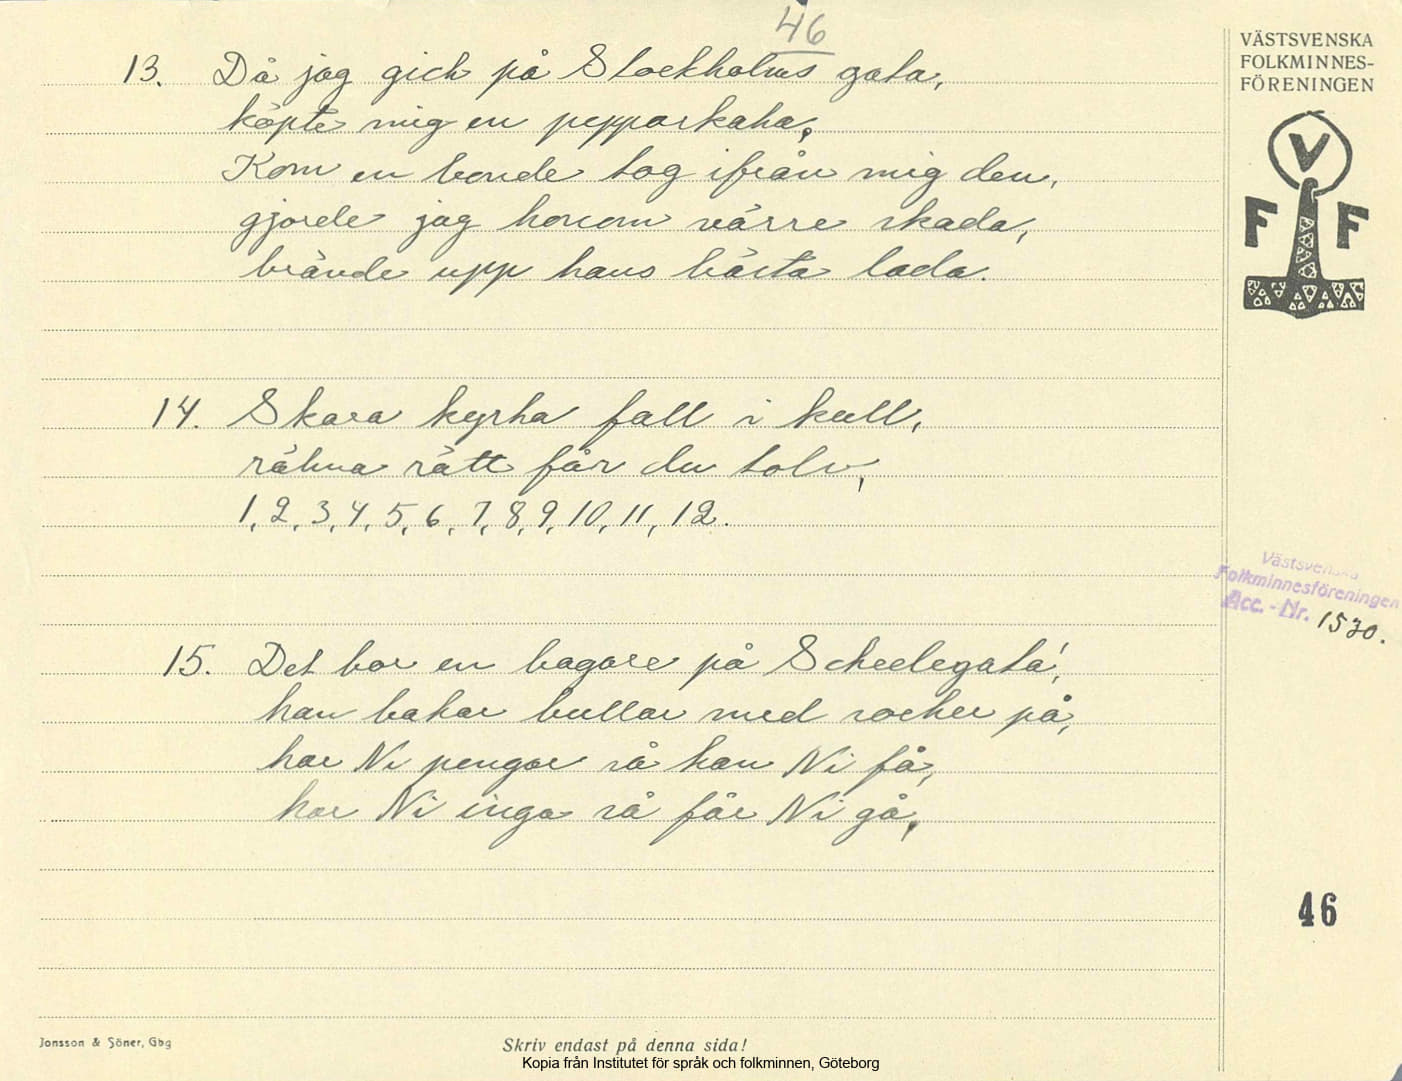 46
VÄSTSVENSKA
FOLKMINNES-
FÖRENINGEN
V
F F
13. Då jag gick på Stockholms gata,
köpte mig en pepparkaka,
Kom en bonde tog ifrån mig den,
gjorde jag honom värre skada,
brände upp hans bästa lada.
14. Skara kyrka fall i kull,
räkna rätt får du tolv,
1, 2, 3, 4, 5, 6, 7, 8, 9, 10, 11, 12.
Västsvenska
Folkminnesföreningen
Acc.-Nr. 1530.
15. Det bor en bagare på Scheelegata!,
han bakar bullar med socker på,
har Ni pengar så kan Ni få,
har Ni inga så får Ni gå,
46
Jonsson & Söner, Gbg
Skriv endast på denna sida!
Kopia från Institutet för språk och folkminnen, Göteborg